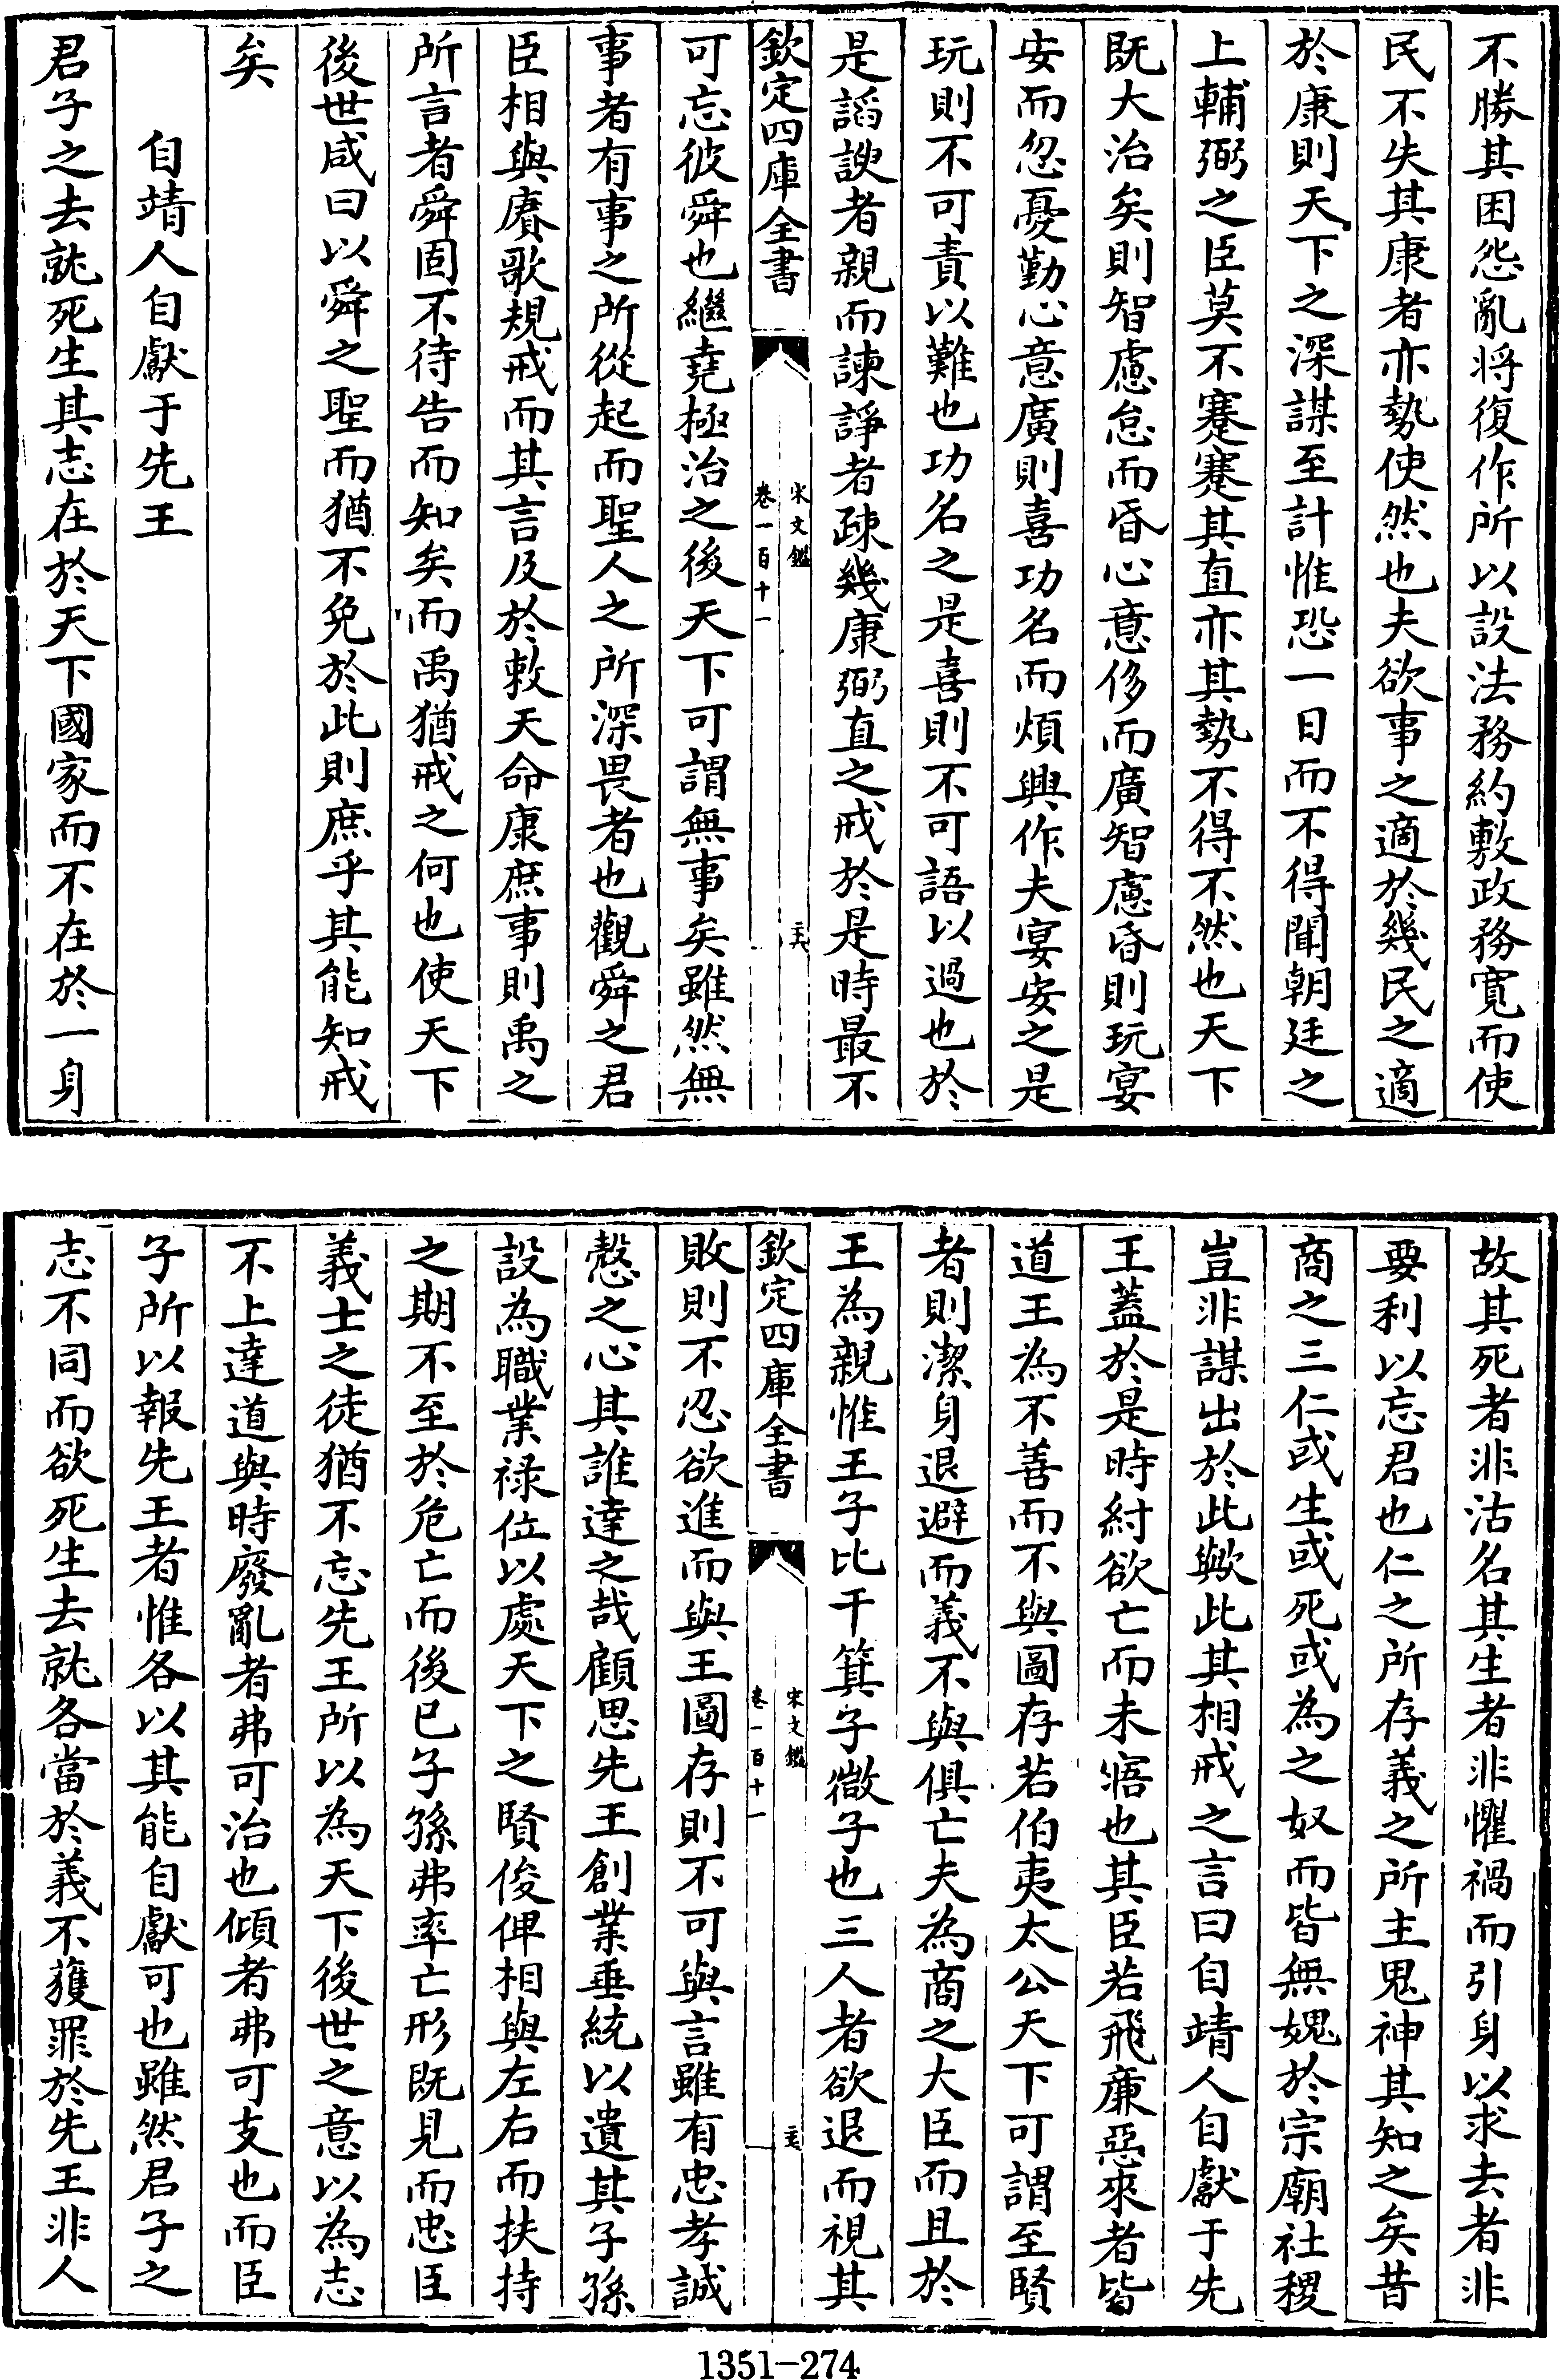 不勝其困怨亂将復作所以設法務約敷政務寛而使
民不失其康者亦勢使然也夫欲事之適於幾民之適
於康則天下之深謀至計惟恐一日而不得聞朝廷之
上輔弼之臣莫不蹇蹇其直亦其勢不得不然也天下
既大治矣則智慮怠而昏心意侈而廣智慮昏則玩宴
安而忽憂勤心意廣則喜功名而煩興作夫宴安之是
玩則不可責以難也功名之是喜則不可語以過也於
是謟諛者親而諫諍者疎幾康弼直之戒於是時最不
欽定四庫全書
宋文鑑
卷一百十一
可忘彼舜也繼堯極治之後天下可謂無事矣雖然無
事者有事之所從起而聖人之所深畏者也觀舜之君
臣相與賡歌規戒而其言及於敕天命康庶事則禹之
所言者舜固不待告而知矣而禹猶戒之何也使天下
後世咸曰以舜之聖而猶不免於此則庶乎其能知戒
矣
自靖人自獻于先王
君子之去就死生其志在於天下國家而不在於一身
故其死者非沽名其生者非懼禍而引身以求去者非
要利以忘君也仁之所存義之所主鬼神其知之矣昔
商之三仁或生或死或為之奴而皆無媿於宗廟社稷
豈非謀出於此歟此其相戒之言曰自靖人自獻于先
王蓋於是時紂欲亡而未寤也其臣若飛廉惡來者皆
道王為不善而不與圖存若伯夷太公天下可謂至賢
者則潔身退避而義不與俱亡夫為商之大臣而且於
王為親惟王子比干箕子微子也三人者欲退而視其
欽定四庫全書
宋文鑑
卷一百十一
敗則不忍欲進而與王圖存則不可與言雖有忠孝誠
慤之心其誰達之哉顧思先王創業垂統以遺其子孫
設為職業祿位以處天下之賢俊俾相與左右而扶持
之期不至於危亡而後已子孫弗率亡形既見而忠臣
義士之徒猶不忘先王所以為天下後世之意以為志
不上達道與時廢亂者弗可治也傾者弗可支也而臣
子所以報先王者惟各以其能自獻可也雖然君子之
志不同而欲死生去就各當於義不獲罪於先王非人
1351-274